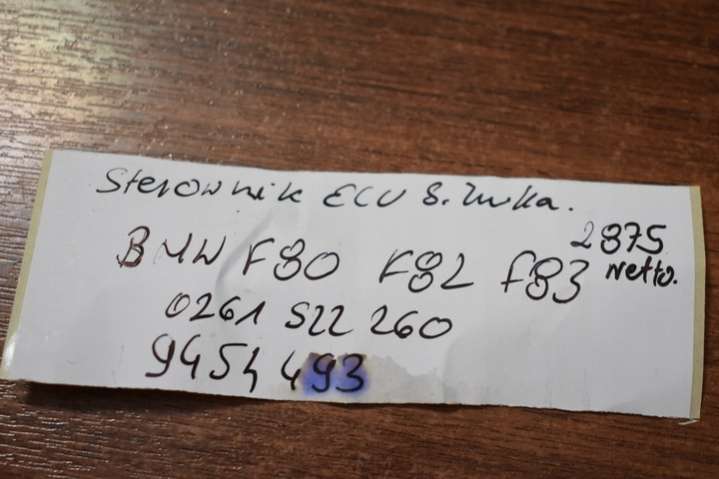 Sterownik ECU Silnika.
2875
BMW F80 F82 F83 netto.
0261 S22 260
9454493